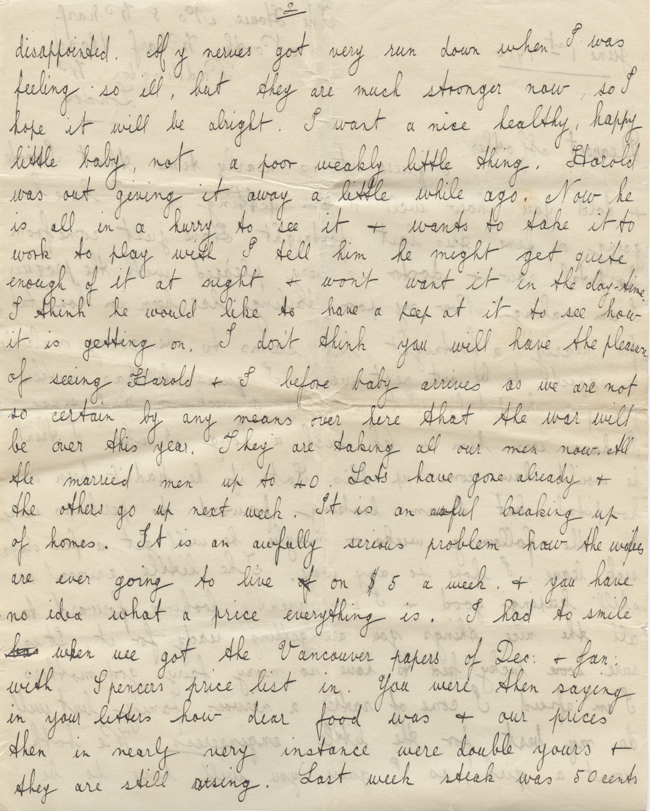 2
disappointed. My nerves got very run down when I was
feeling so ill, but they are much stronger now, so I
hope it will be alright. I want a nice healthy, happy
little baby, not a poor weakly little thing. Harold
was out giving it away a little while ago. Now he
is all in a hurry to see it + wants to take it to
work to play with, I tell him he might get quite
enough of it at night + won't want it in the day-time.
I think he would like to have a peep at it to see how
it is getting on. I don't think you will have the pleasure
of seeing Harold + I before baby arrives as we are not
so certain by any means over here that the war will
be over this year. They are taking all our men now. All
the married men up to 40. Lots have gone already +
the others go up next week. It is an awful breaking up
of homes. It is an awfully serious problem how the wifes
are ever going to live on $5 a week. + you have
no idea what a price everything is. I had to smile
when wee got the Vancouver papers of Dec: + Jan:
with Spencers price list in. You were then saying
in your litters how diar food was + our prices
then in nearly very instance were double yours +
they are still rising. Last week steak was 50 cents